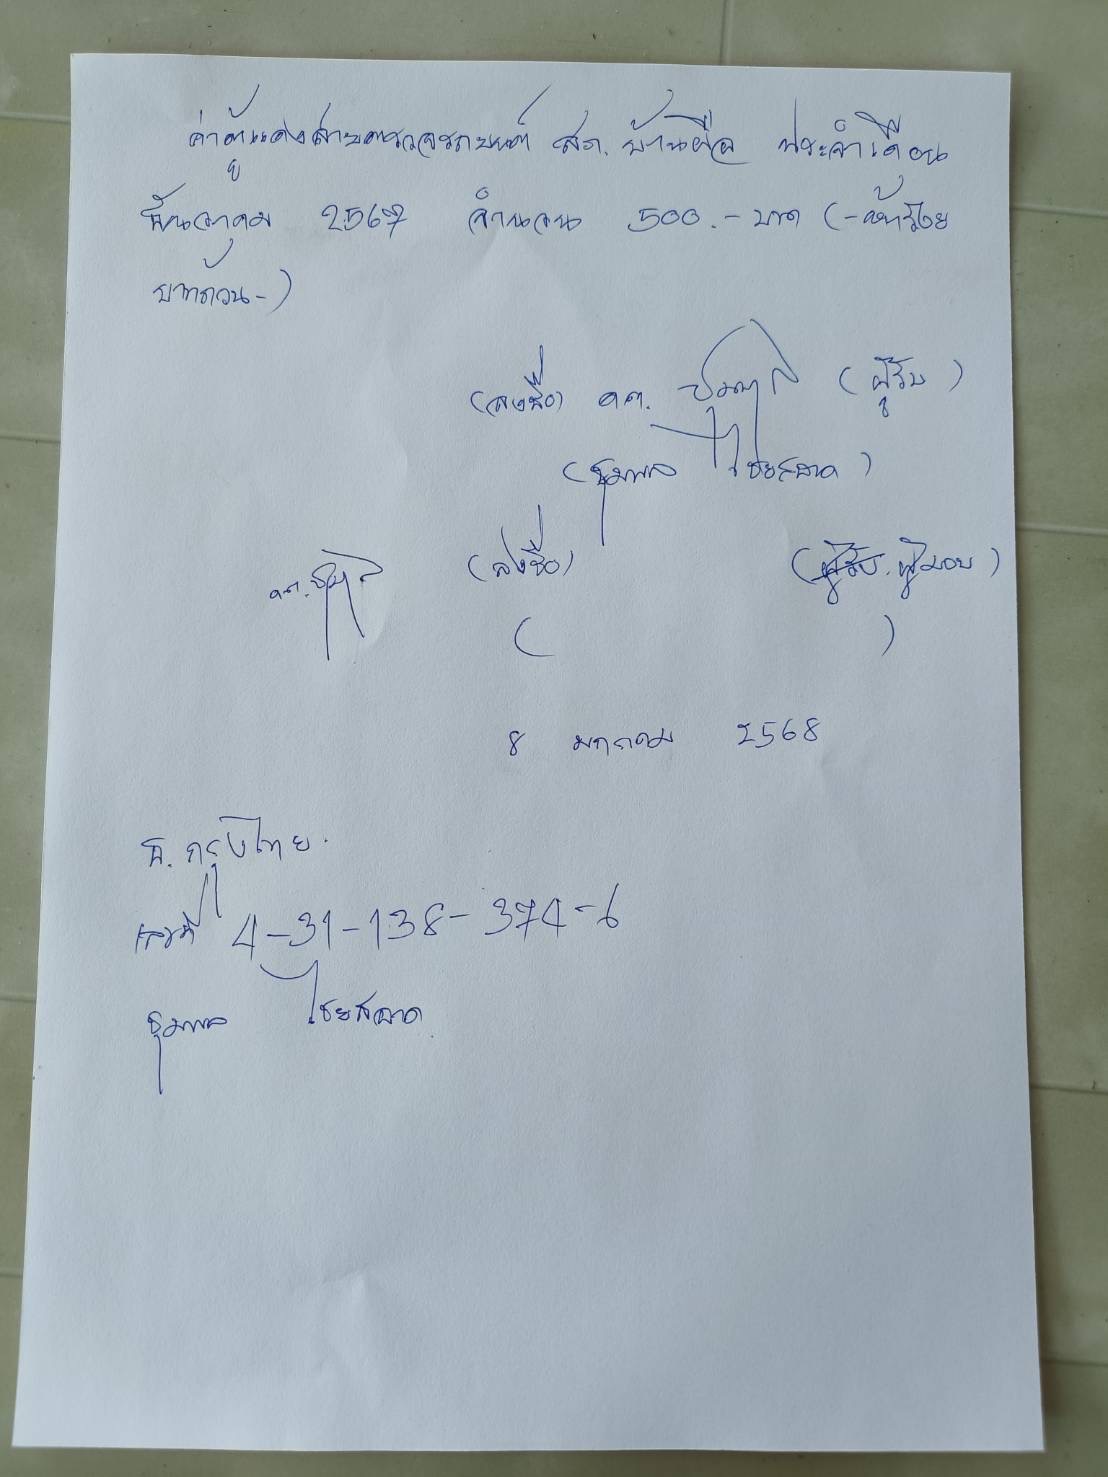 ค่าตู้แดงสายตรวจรถยนต์ สภ. บ้านผือ ประจำเดือน
ธันวาคม 2567 จำนวน 500.- บาท (-ห้าร้อย
บาทถ้วน-)
(ลงชื่อ) ด.ต. (ผู้รับ)
(ชุมพล ไชยสอาด)
(ลงชื่อ) (ผู้รับ. ผู้มอบ)
ด.ต.
( )
8 มกราคม 2568
ธ. กรุงไทย.
เลขที่ 4-31-138-374-6
ชุมพล ไชยสอาด